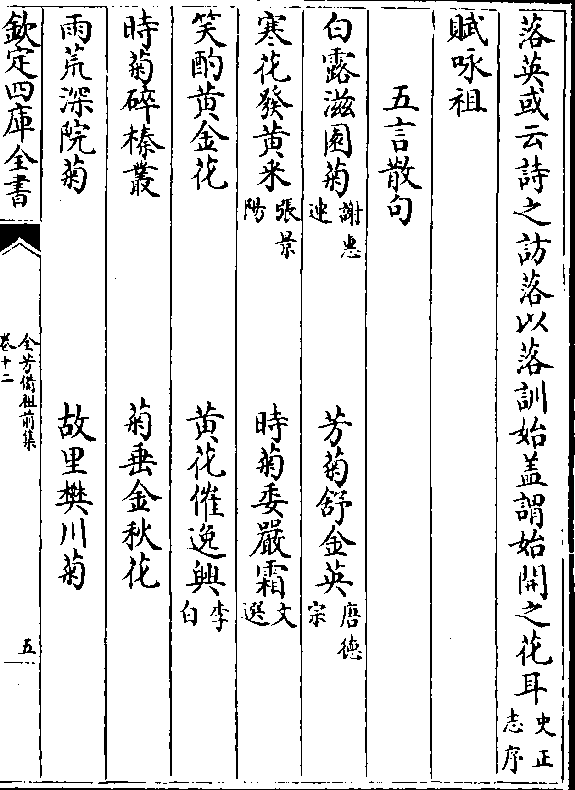 落英或云詩之訪落以落訓始盖謂始開之花耳史正志序
賦咏祖
五言散句
白露滋園菊謝惠連　芳菊舒金英唐德宗
寒花發黄采張景陽　時菊委嚴霜文選
笑酌黄金花　黄花催逸興李白
時菊碎榛叢　菊垂金秋花
雨荒深院菊　故里樊川菊
欽定四庫全書
全芳備祖前集
卷十二
五